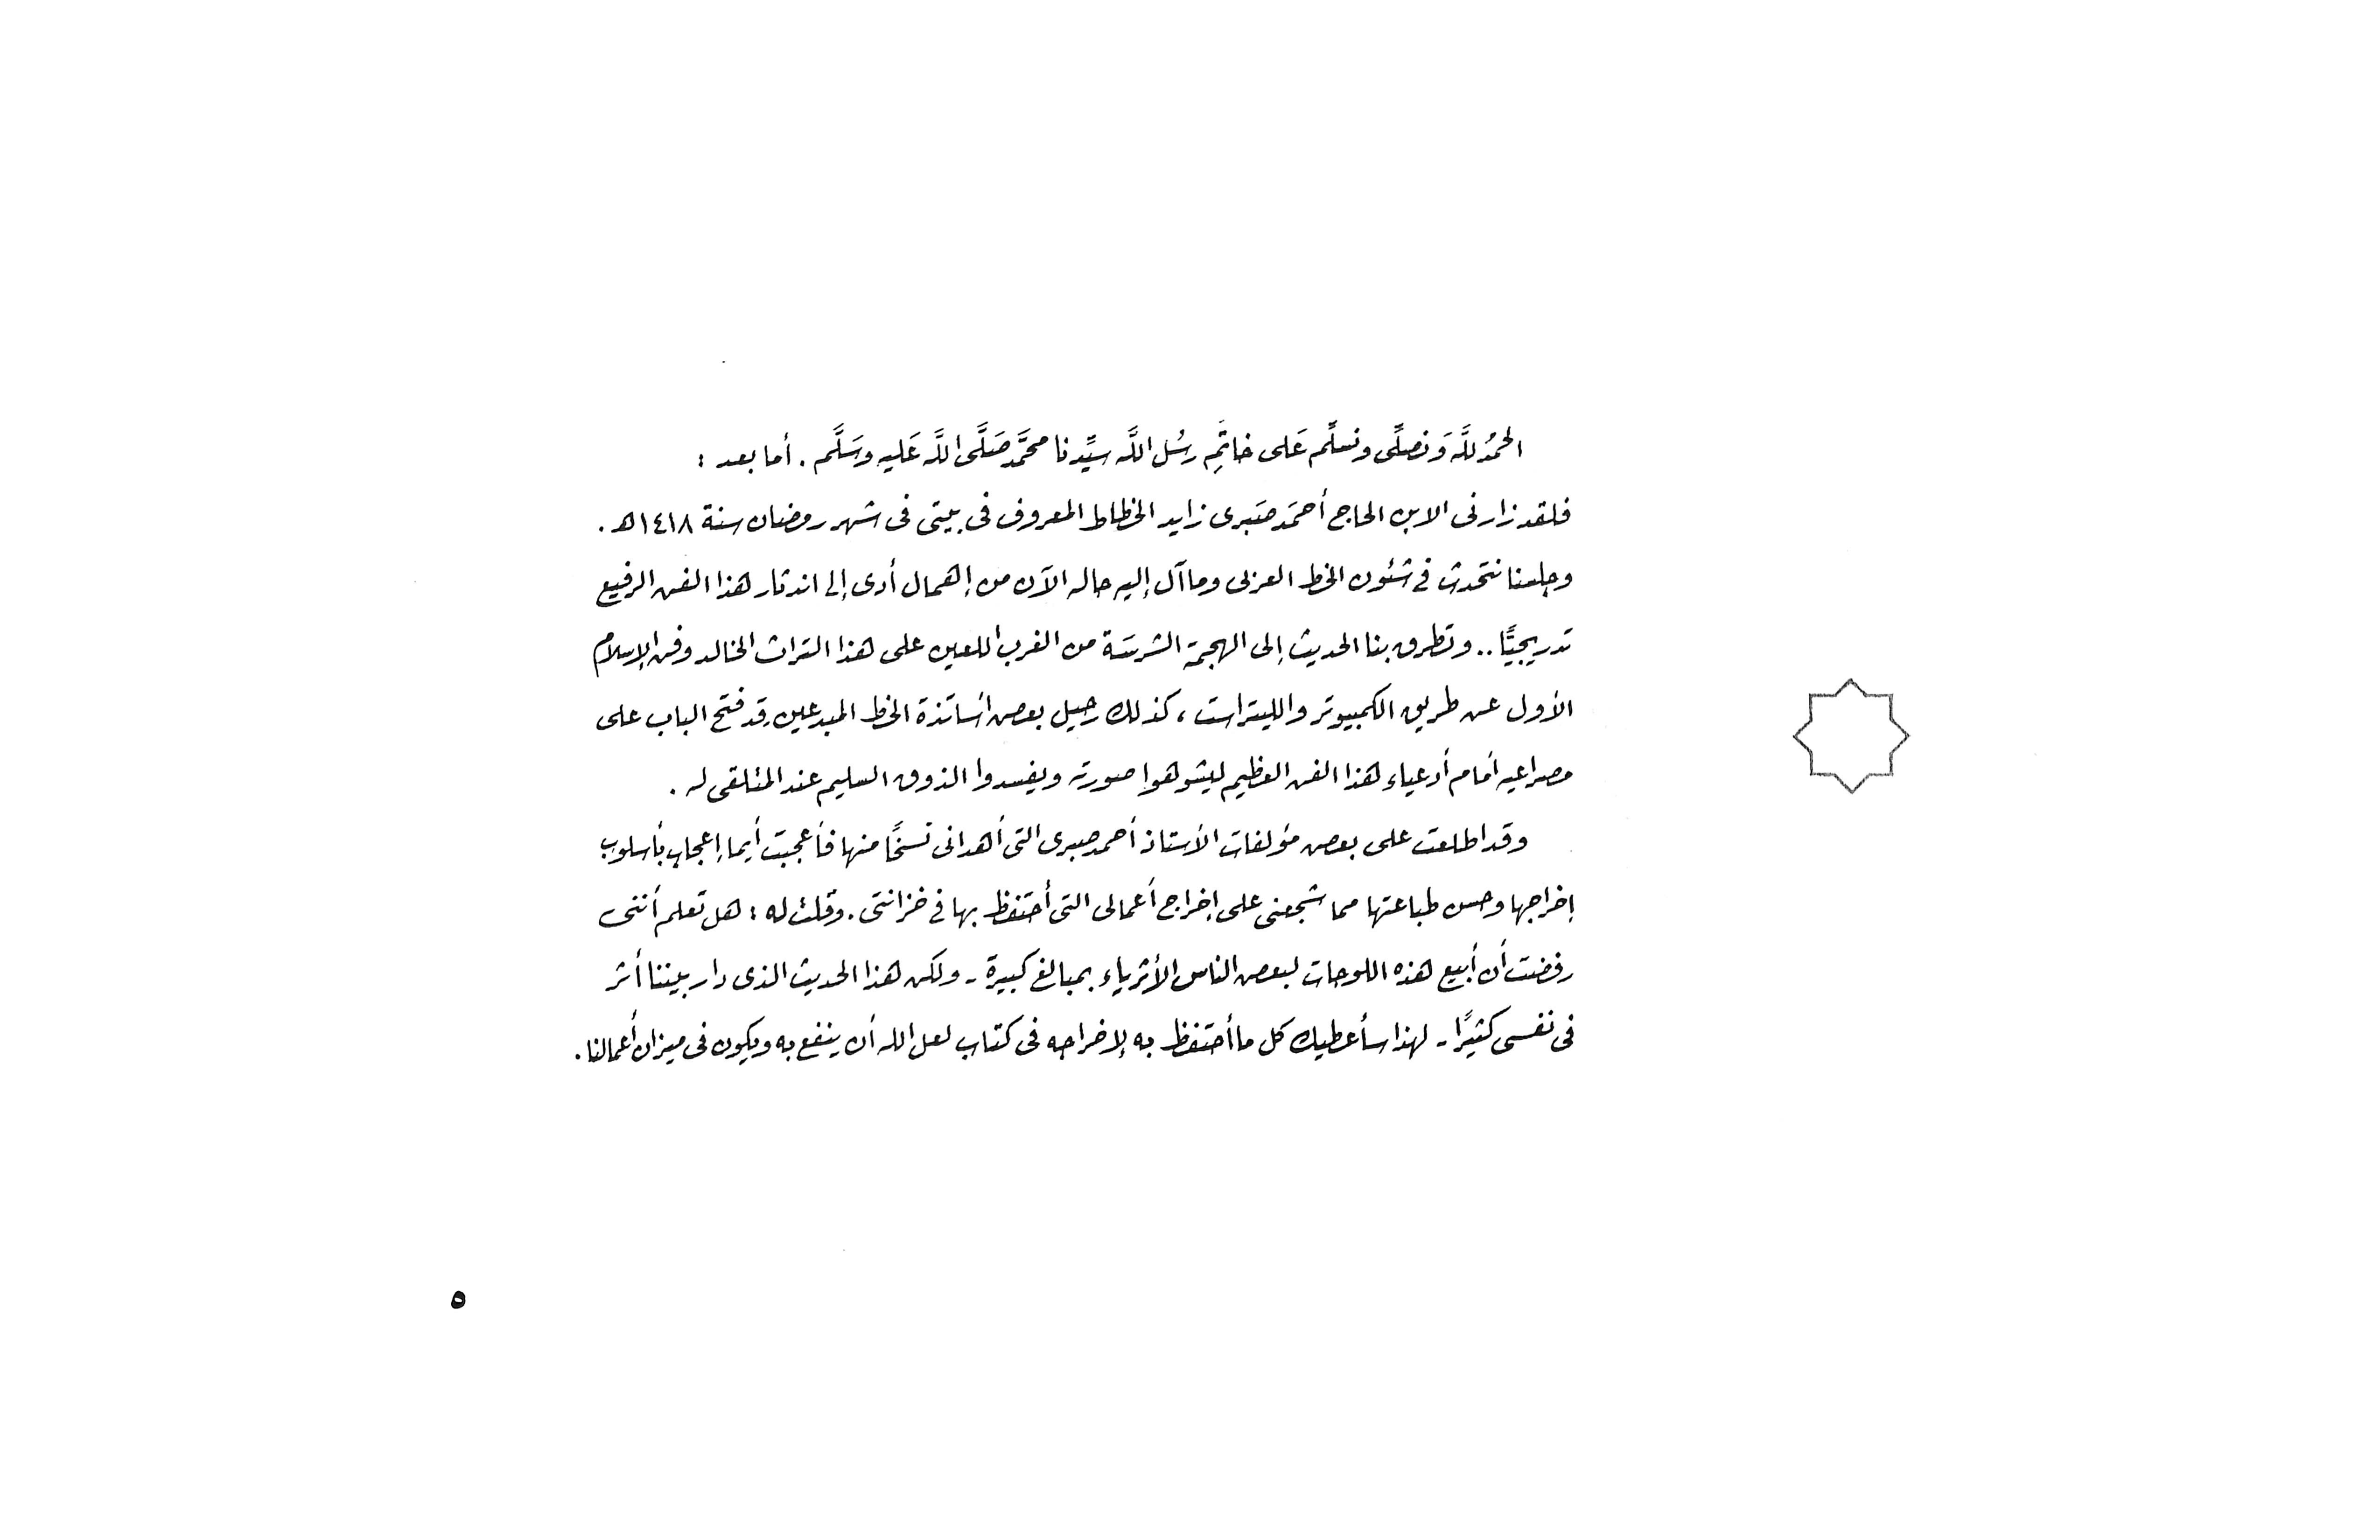 الحمدُ للَّه وَنصلِّى ونسلِّم عَلى خاتَمِ رسُل اللَّه سيِّدنا محمَّد صَلَّى اللَّه عَليه وسَلَّم . أما بعد :
فلقد زارنى الابن الحاج أحمَد صَبرى زايد الخطاط المعروف فى بيتى فى شهر رمضان سنة ١٤١٨هـ .
وجلسنا نتحدث فى شئون الخط العربى وما آل إليه حاله الآن من إهمال أدى إلى اندثار هذا الفن الرفيع
تدريجيًّا .. وتطرق بنا الحديث إلى الهجمة الشرسَة من الغرب اللعين على هذا التراث الخالد وفن الإسلام
الأول عن طريق الكمبيوتر والليتراست ، كذلك رحيل بعض أساتذة الخط المبدعين قد فتح الباب على
مصراعيه أمام أدعياء هذا الفن العظيم ليشوهوا صورته ويفسدوا الذوق السليم عند المتلقى له .
وقد اطلعت على بعض مؤلفات الأستاذ أحمد صبرى التى أهدانى نسخًا منها فأعجبت أيما إعجاب بأسلوب
إخراجها وحسن طباعتها مما شجعنى على إخراج أعمالى التى أحتفظ بها فى خزانتى . وقلت له : هل تعلم أننى
رفضت أن أبيع هذه اللوحات لبعض الناس الأثرياء بمبالغ كبيرة - ولكن هذا الحديث الذى دار بيننا أثر
فى نفسى كثيرًا - لهذا سأعطيك كل ما أحتفظ به لإخراجه فى كتاب لعل الله أن ينفع به ويكون فى ميزان أعمالنا .
٥